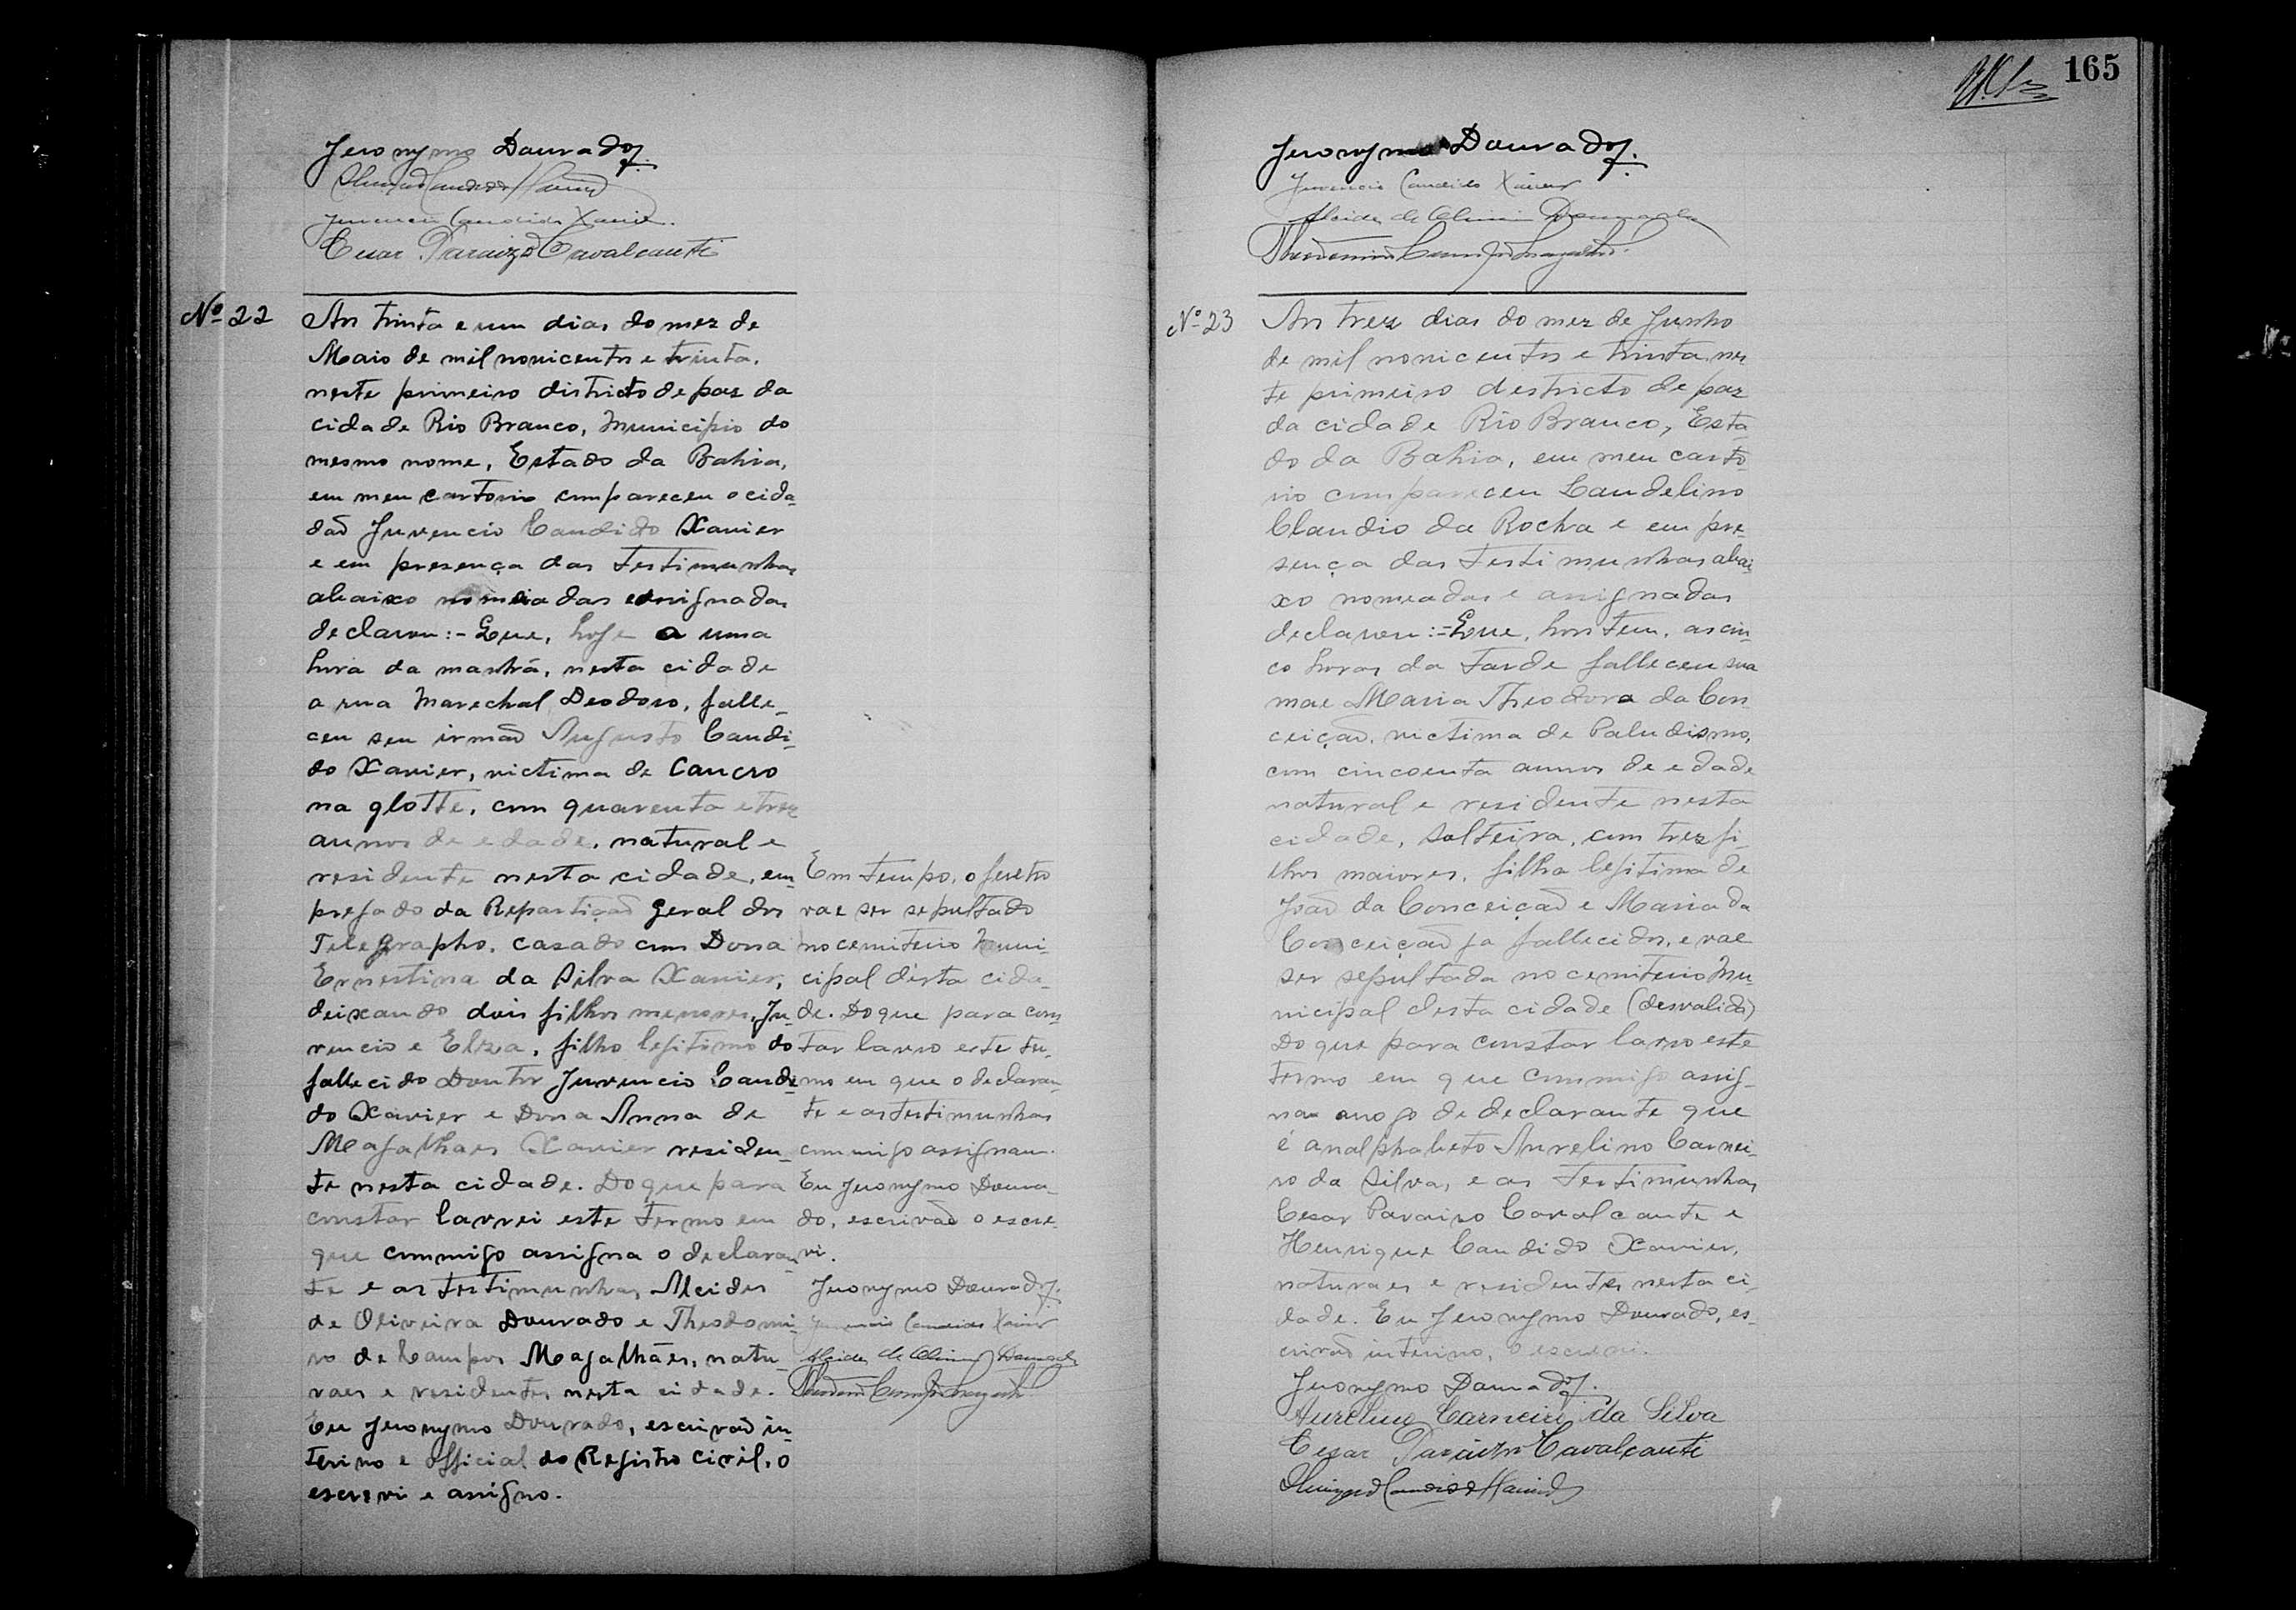 Jeronymo Dourado
Juvencio Candido Xavier
Cesar Paraizo Cavalcanti
Nº 22
Aos trinta e um dias do mez de
Maio de mil novicentos e trinta,
neste primeiro districto de paz da
cidade Rio Branco, Municipio do
mesmo nome, Estado da Bahia,
em meu cartorio compareceu o cida-
dão Juvencio Candido Xavier
e em presença das testimunhas
abaixo nomeadas e assignadas
declarou:- Que, hoje a uma
hora da manhã, nesta cidade
a rua Marechal Deodoro, falle-
ceu seu irmão Augusto Candi-
do Xavier, victima de Cancro
na glotte, com quarenta e trez
annos de edade, natural e
residente nesta cidade, em-
pregado da Repartição Geral dos
Telegrapho, casado com Dona
Ernestina da Silva Xavier,
deixando dois filhos menores, Ju-
vencio e Elza, filho legitimo do
fallecido Doutor Juvencio Candi-
do Xavier e Dona Anna de
Magalhaes Xavier residen-
te nesta cidade. Do que para
constar lavrei este termo em
que commigo assigna o declaran-
te e as testimunhas Alcides
de Oliveira Dourado e Theodomi-
ro de Campos Magalhães, natu-
raes e residentes nesta cidade.
Eu Jeronymo Dourado, escrivão in-
terino e official do Registro civil, o
escrevi e assigno.
Em tempo, o feretro
vae ser sepultado
no cemiterio Muni-
cipal désta cida-
de. Do que para cons-
tar lavro este ter-
mo em que o declaran-
te e as testimunhas
commigo assignam.
Eu Jeronymo Doura-
do, escrivão o escre-
vi.
Jeronymo Dourado
Juvencio Candido Xavier
Alcides de Oliveira Dourado
165
Jeronymo Dourado
Juvencio Candido Xavier
Alcides de Oliveira Dourado
Nº 23
Aos trez dias do mez de Junho
de mil novicentos e trinta, nes-
te primeiro destricto de paz
da cidade Rio Branco, Esta-
do da Bahia, em meu carto-
rio compareceu Laudelino
Claudio da Rocha e em pre-
sença das testimunhas abai-
xo nomeadas e assignadas
declarou:=Que, hontem, as cin-
co horas da tarde falleceu sua
mae Maria Theodora da Con-
ceição, victima de Paludismo,
com cincoenta annos de edade
natural e residente nesta
cidade, solteira, com trez fi-
lhos maiores, filha legitima de
João da Conceição e Maria da
Conceição ja fallecidos, e vae
ser sepultada no cemiterio Mu-
nicipal desta cidade (desvalida)
Do que para constar lavro este
termo em que commigo assig-
na a rogo de declarante que
é analphabeto Aurelino Carnei-
ro da Silva, e as testimunhas
Cesar Paraiso Cavalcante e
Henrique Candido Xavier,
naturaes e residentes nesta ci-
dade. Eu Jeronymo Dourado, es-
crivão interino, o escrevi.
Jeronymo Dourado
Aurelino Carneiro da Silva
Cesar Paraizo Cavalcanti